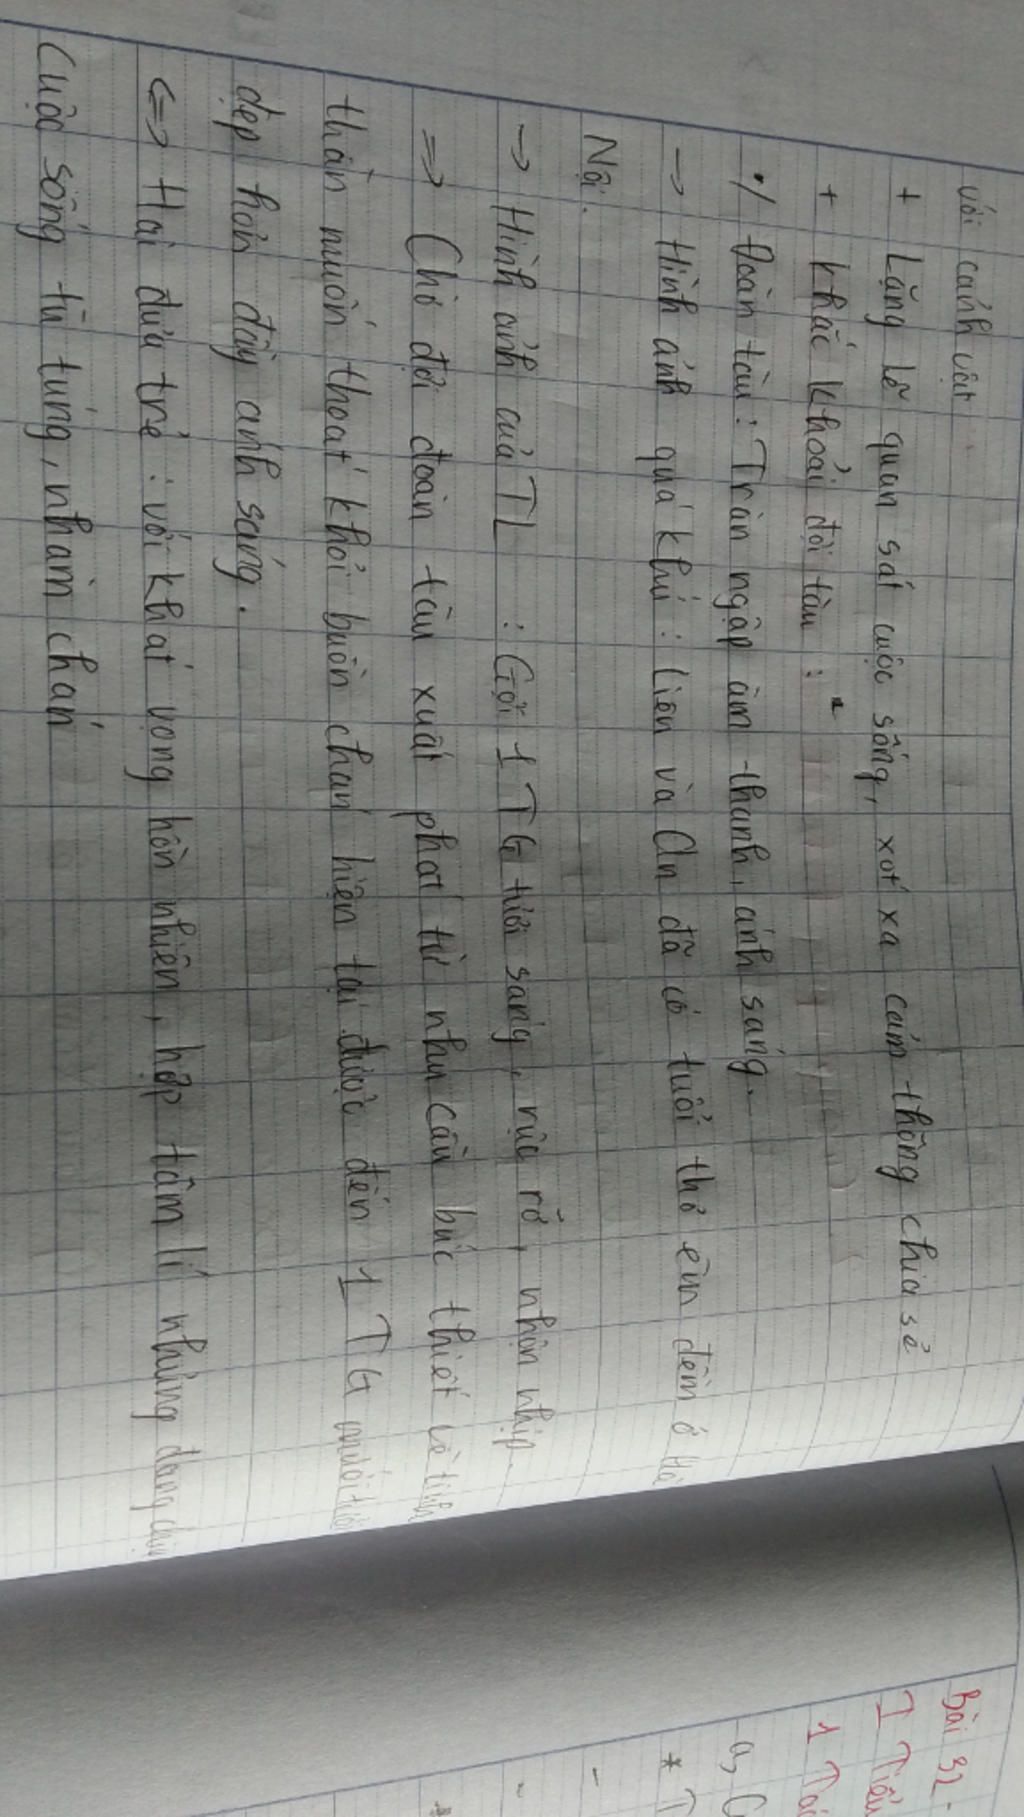 với cảnh vật
+ Lặng lẽ quan sát cuộc sống, xót xa cảm thông chia sẻ
+ khắc khoải đợi tàu :
·/ Đoàn tàu : Tràn ngập âm thanh, ánh sáng.
→ Hình ảnh quá khứ : Liên và An đã có tuổi thơ êm đềm ở Hà
Nội.
→ Hình ảnh của TL : Gợi 1 TG tươi sáng, rực rỡ, nhộn nhịp.
=> Chờ đợi đoàn tàu xuất phát từ nhu cầu bức thiết về tinh
thần muốn thoát khỏi buồn chán hiện tại được đến 1 TG
đẹp hơn đầy ánh sáng.
<=> Hai đứa trẻ : với khát vọng hồn nhiên, hợp tâm lí nhưng đang
cuộc sống tù túng, nhàm chán
Bài 32
I Tiểu
1 Tác
a,
*
-
-